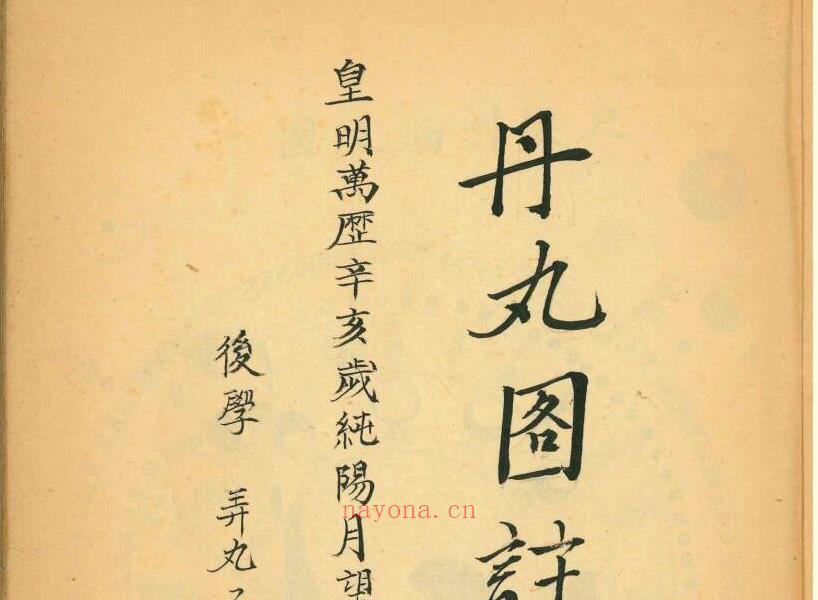 丹丸图註
皇明萬歷辛亥歲純陽月望
後學 弄丸
nayona.cn